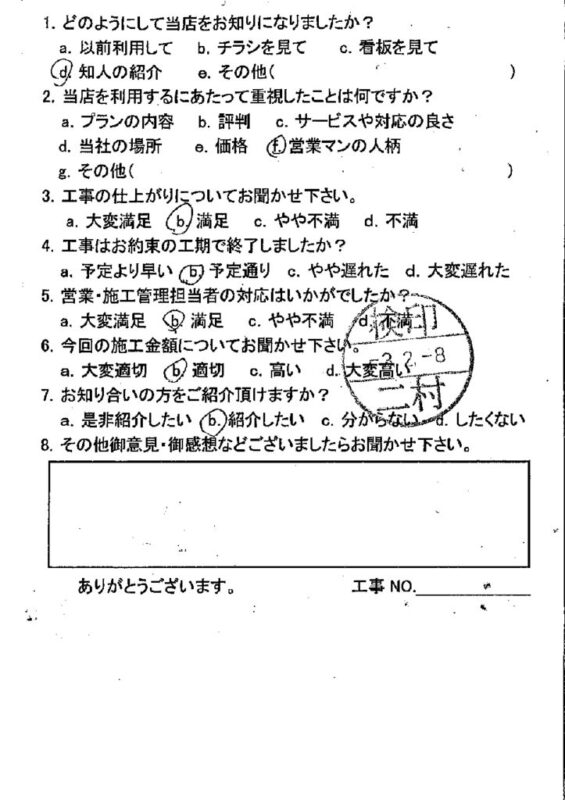 1. どのようにして当店をお知りになりましたか？
a. 以前利用して b. チラシを見て c. 看板を見て
d. 知人の紹介 e. その他( )
2. 当店を利用するにあたって重視したことは何ですか？
a. プランの内容 b. 評判 c. サービスや対応の良さ
d. 当社の場所 e. 価格 f. 営業マンの人柄
g. その他( )
3. 工事の仕上がりについてお聞かせ下さい。
a. 大変満足 b. 満足 c. やや不満 d. 不満
4. 工事はお約束の工期で終了しましたか？
a. 予定より早い b. 予定通り c. やや遅れた d. 大変遅れた
5. 営業・施工管理担当者の対応はいかがでしたか？
a. 大変満足 b. 満足 c. やや不満 d. 不満
検印
6. 今回の施工金額についてお聞かせ下さい。
3.2.-8
a. 大変適切 b. 適切 c. 高い d. 大変高い
二村
7. お知り合いの方をご紹介頂けますか？
a. 是非紹介したい b. 紹介したい c. 分からない d. したくない
8. その他御意見・御感想などございましたらお聞かせ下さい。
ありがとうございます。 工事 NO.